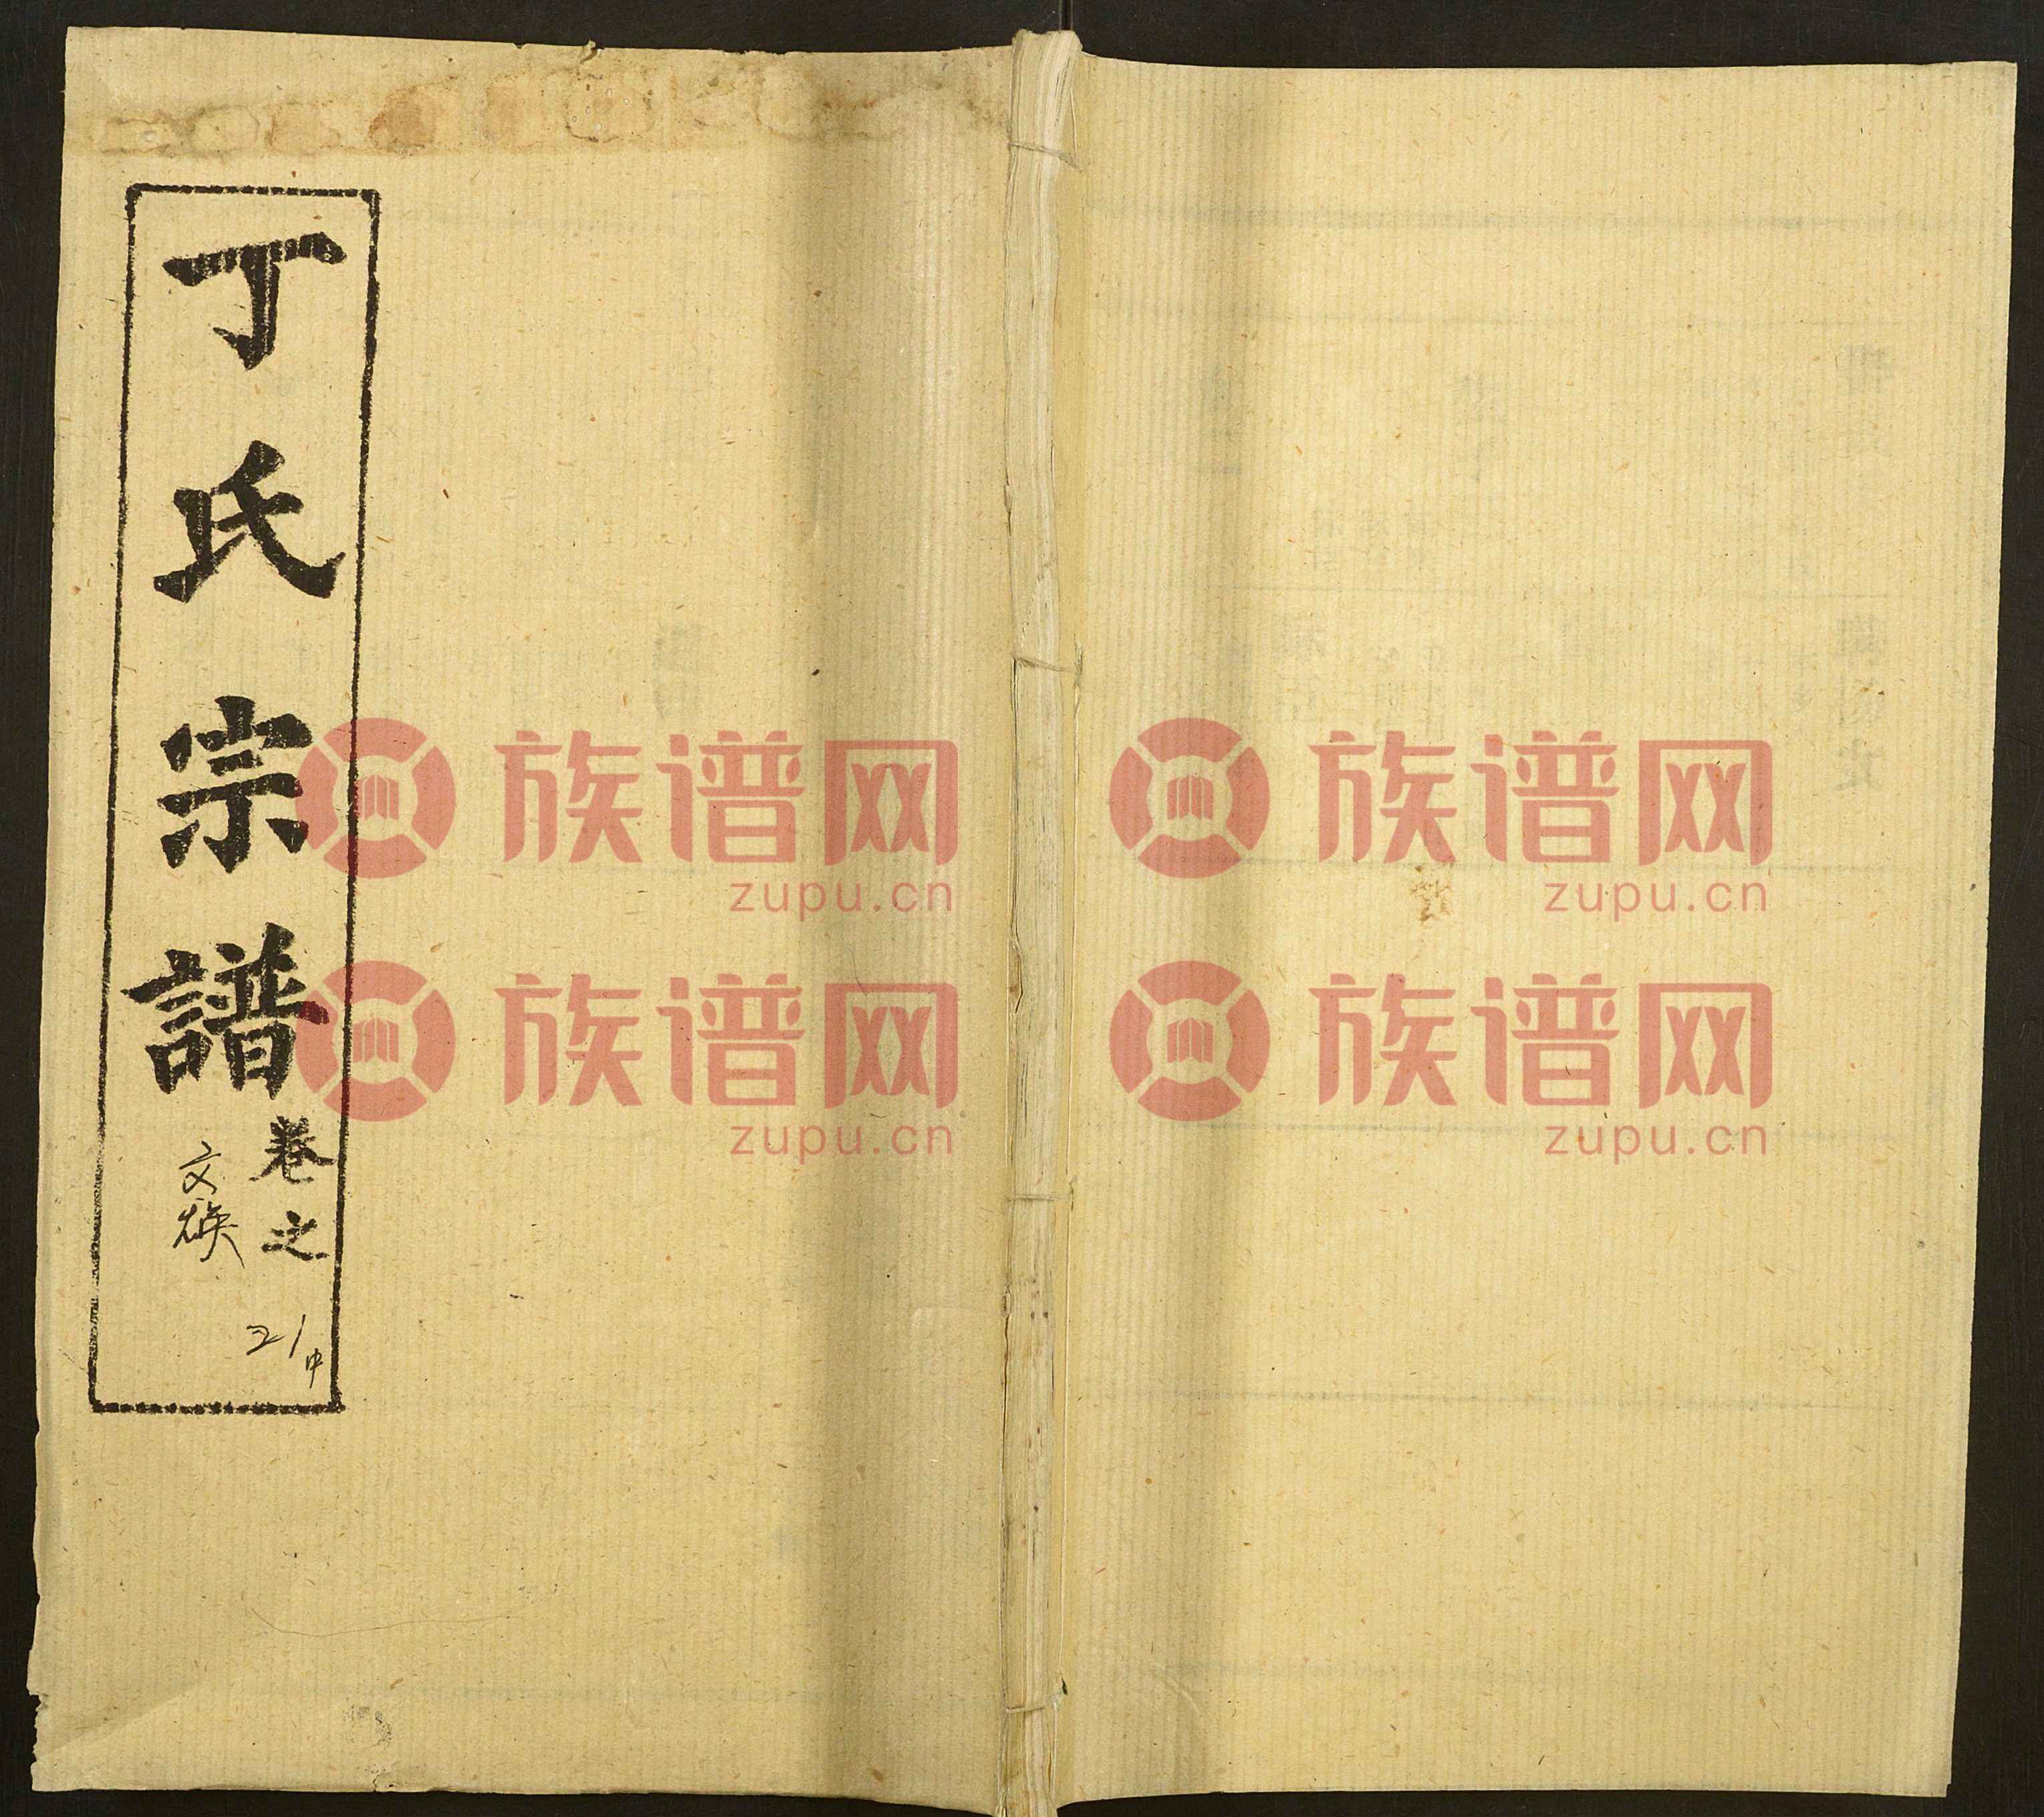 丁氏宗譜
卷之 21 中
文焕
族谱网
zupu.cn
族谱网
zupu.cn
族谱网
zupu.cn
族谱网
zupu.cn